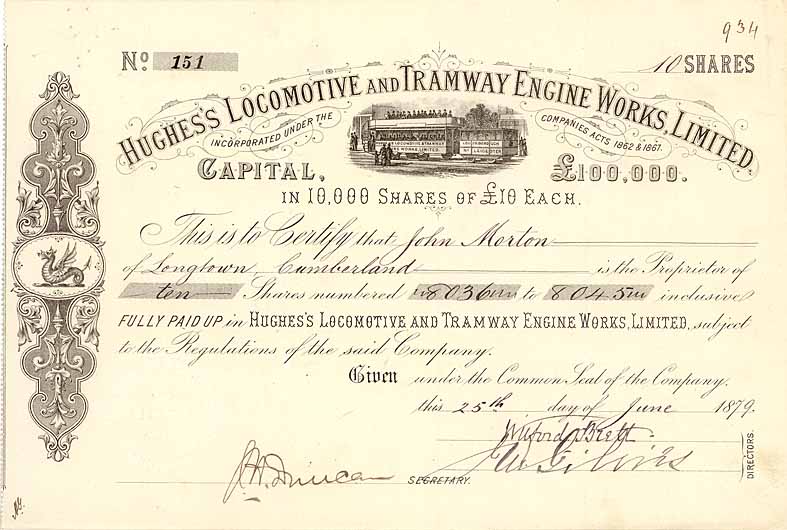 934
No 151
10 SHARES
HUGHES'S LOCOMOTIVE AND TRAMWAY ENGINE WORKS, LIMITED.
INCORPORATED UNDER THE
COMPANIES ACTS 1862 & 1867.
CAPITAL,
£100,000.
IN 10,000 SHARES OF £10 EACH.
This is to Certify that John Morton
of Longtown, Cumberland is the Proprietor of
ten Shares numbered 8036 to 8045 inclusive
FULLY PAID UP in HUGHES'S LOCOMOTIVE AND TRAMWAY ENGINE WORKS, LIMITED, subject
to the Regulations of the said Company.
Given under the Common Seal of the Company.
this 25th day of June 1879.
Wilford Brett
DIRECTORS.
J. H. Duncan SECRETARY.